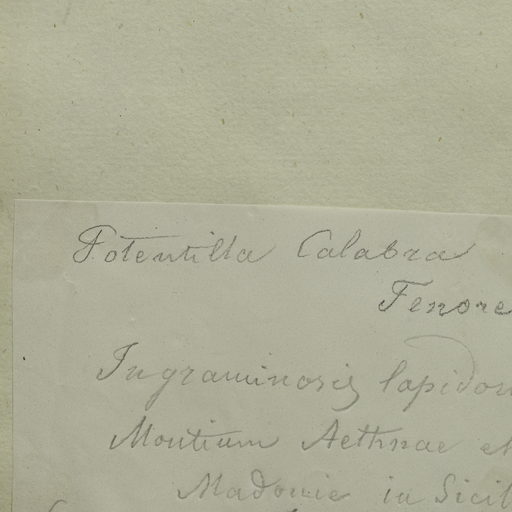 Potentilla Calabra
Tenore
In graminosis lapidos
Montium Aethnae et
Madonie in Sicil